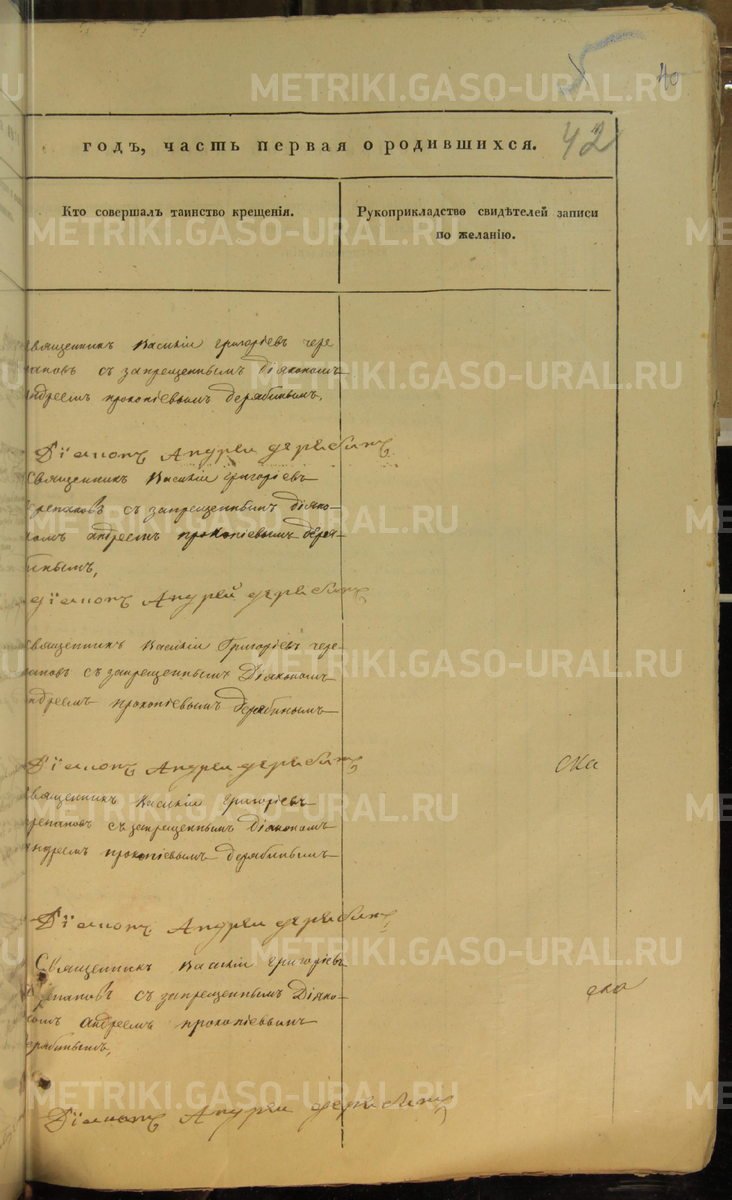 40
42
годъ, часть первая о родившихся.
Кто совершалъ таинство крещенія.
Рукоприкладство свидѣтелей записи
по желанію.
священникъ Василіи григоріевъ чере
пановъ съ запрещеннымъ діякономъ
андреемъ прокопіевымъ дерябинымъ,
Діаконъ Андреи дерябинъ
Священникъ Василіи григоріевъ
черепановъ съ запрещеннымъ діяко-
номъ андреемъ прокопіевымъ деря-
бинымъ,
діаконъ Андрей дерябинъ
священникъ Василіи Григоріевъ чере-
пановъ съ запрещеннымъ Діякономъ
андреемъ прокопіевымъ дерябинымъ
Діаконъ Андреи дерябинъ
священникъ Василіи григоріевъ
черепановъ съ запрещеннымъ Діякономъ
андреемъ прокопіевымъ дерябинымъ
Діаконъ Андреи дерябинъ
Священникъ Василіи григоріевъ
черепановъ съ запрещеннымъ Діяко-
номъ андреемъ прокопіевымъ
дерябинымъ,
Діаконъ Андреи дерябинъ
METRIKI.GASO-URAL.RU